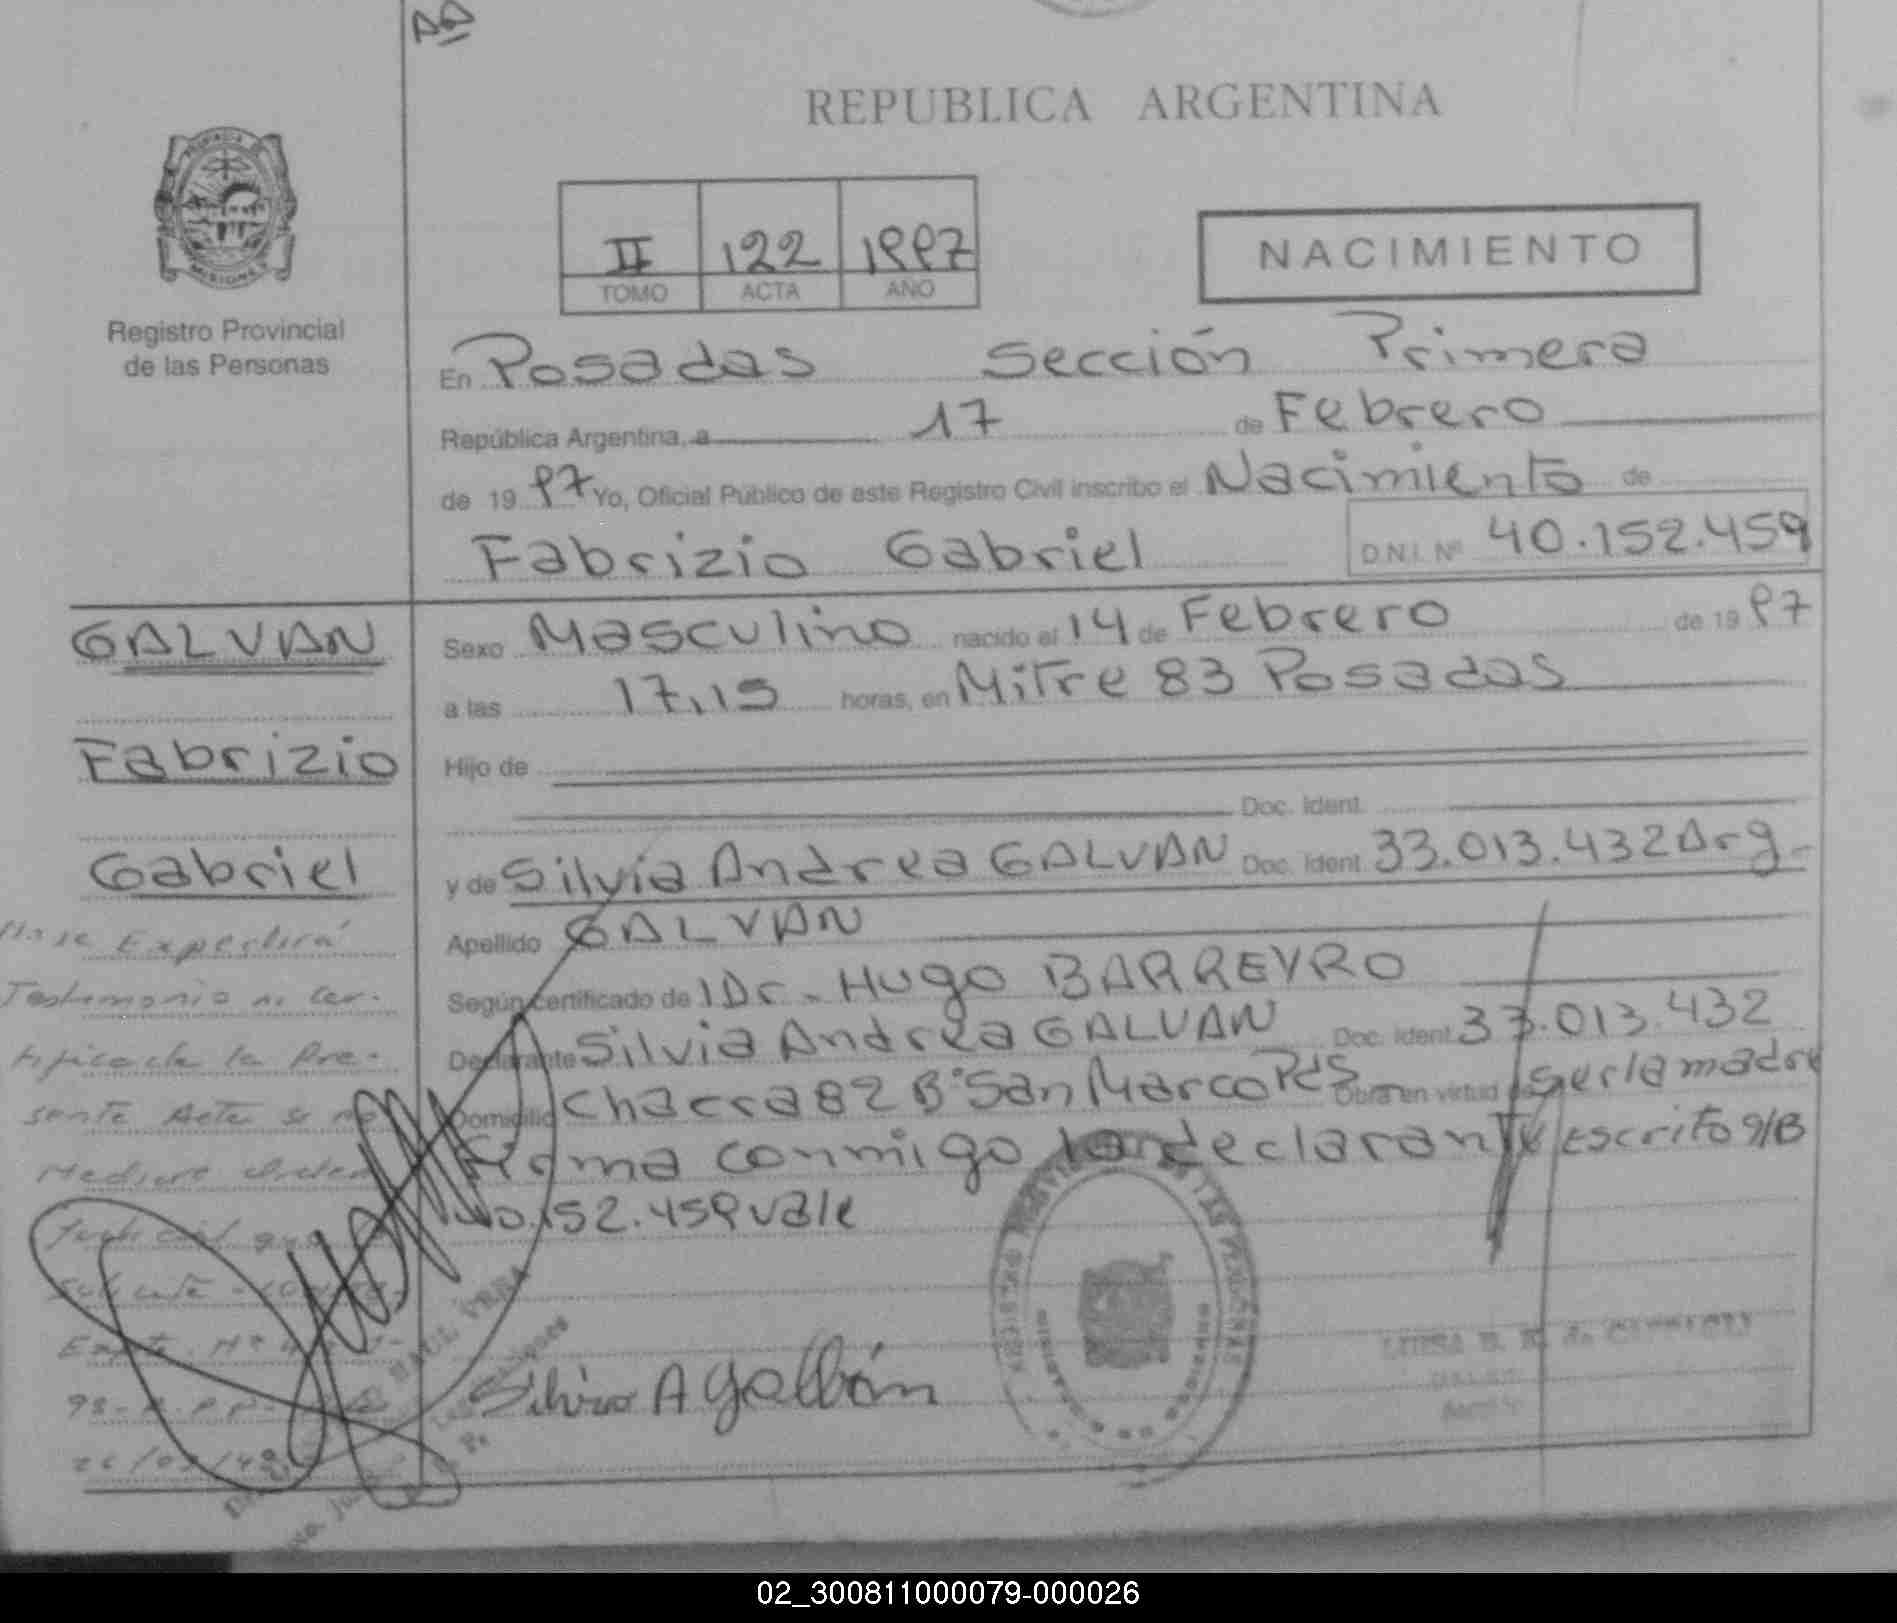 REPUBLICA ARGENTINA
PROVINCIA DE
MISIONES
Registro Provincial
de las Personas
II 122 1997
TOMO ACTA AÑO
NACIMIENTO
En Posadas Sección Primera
República Argentina, a 17 de Febrero
de 19 97 Yo, Oficial Público de este Registro Civil inscribo el Nacimiento de
Fabrizio Gabriel D.N.I. Nº 40.152.459
GALVAN
Fabrizio
Gabriel
Sexo Masculino nacido el 14 de Febrero de 19 97
a las 17,15 horas, en Mitre 83 Posadas
Hijo de
Doc. Ident.
y de Silvia Andrea GALVAN Doc. Ident. 33.013.432 Arg.
Apellido GALVAN
Según certificado de Dr. Hugo BARREYRO
Declarante Silvia Andrea GALVAN Doc. Ident. 33.013.432
Domicilio Chacra 82 Bº San Marco Pds Obra en virtud de ser la madre
Firma conmigo la declarante Escrito s/B
40.152.459 vale
No se Expedirá
Testimonio ni cer-
tificado de la Pre-
sente Acta si no
Mediare Orden
Judicial que
Silvia A Galván
02_300811000079-000026